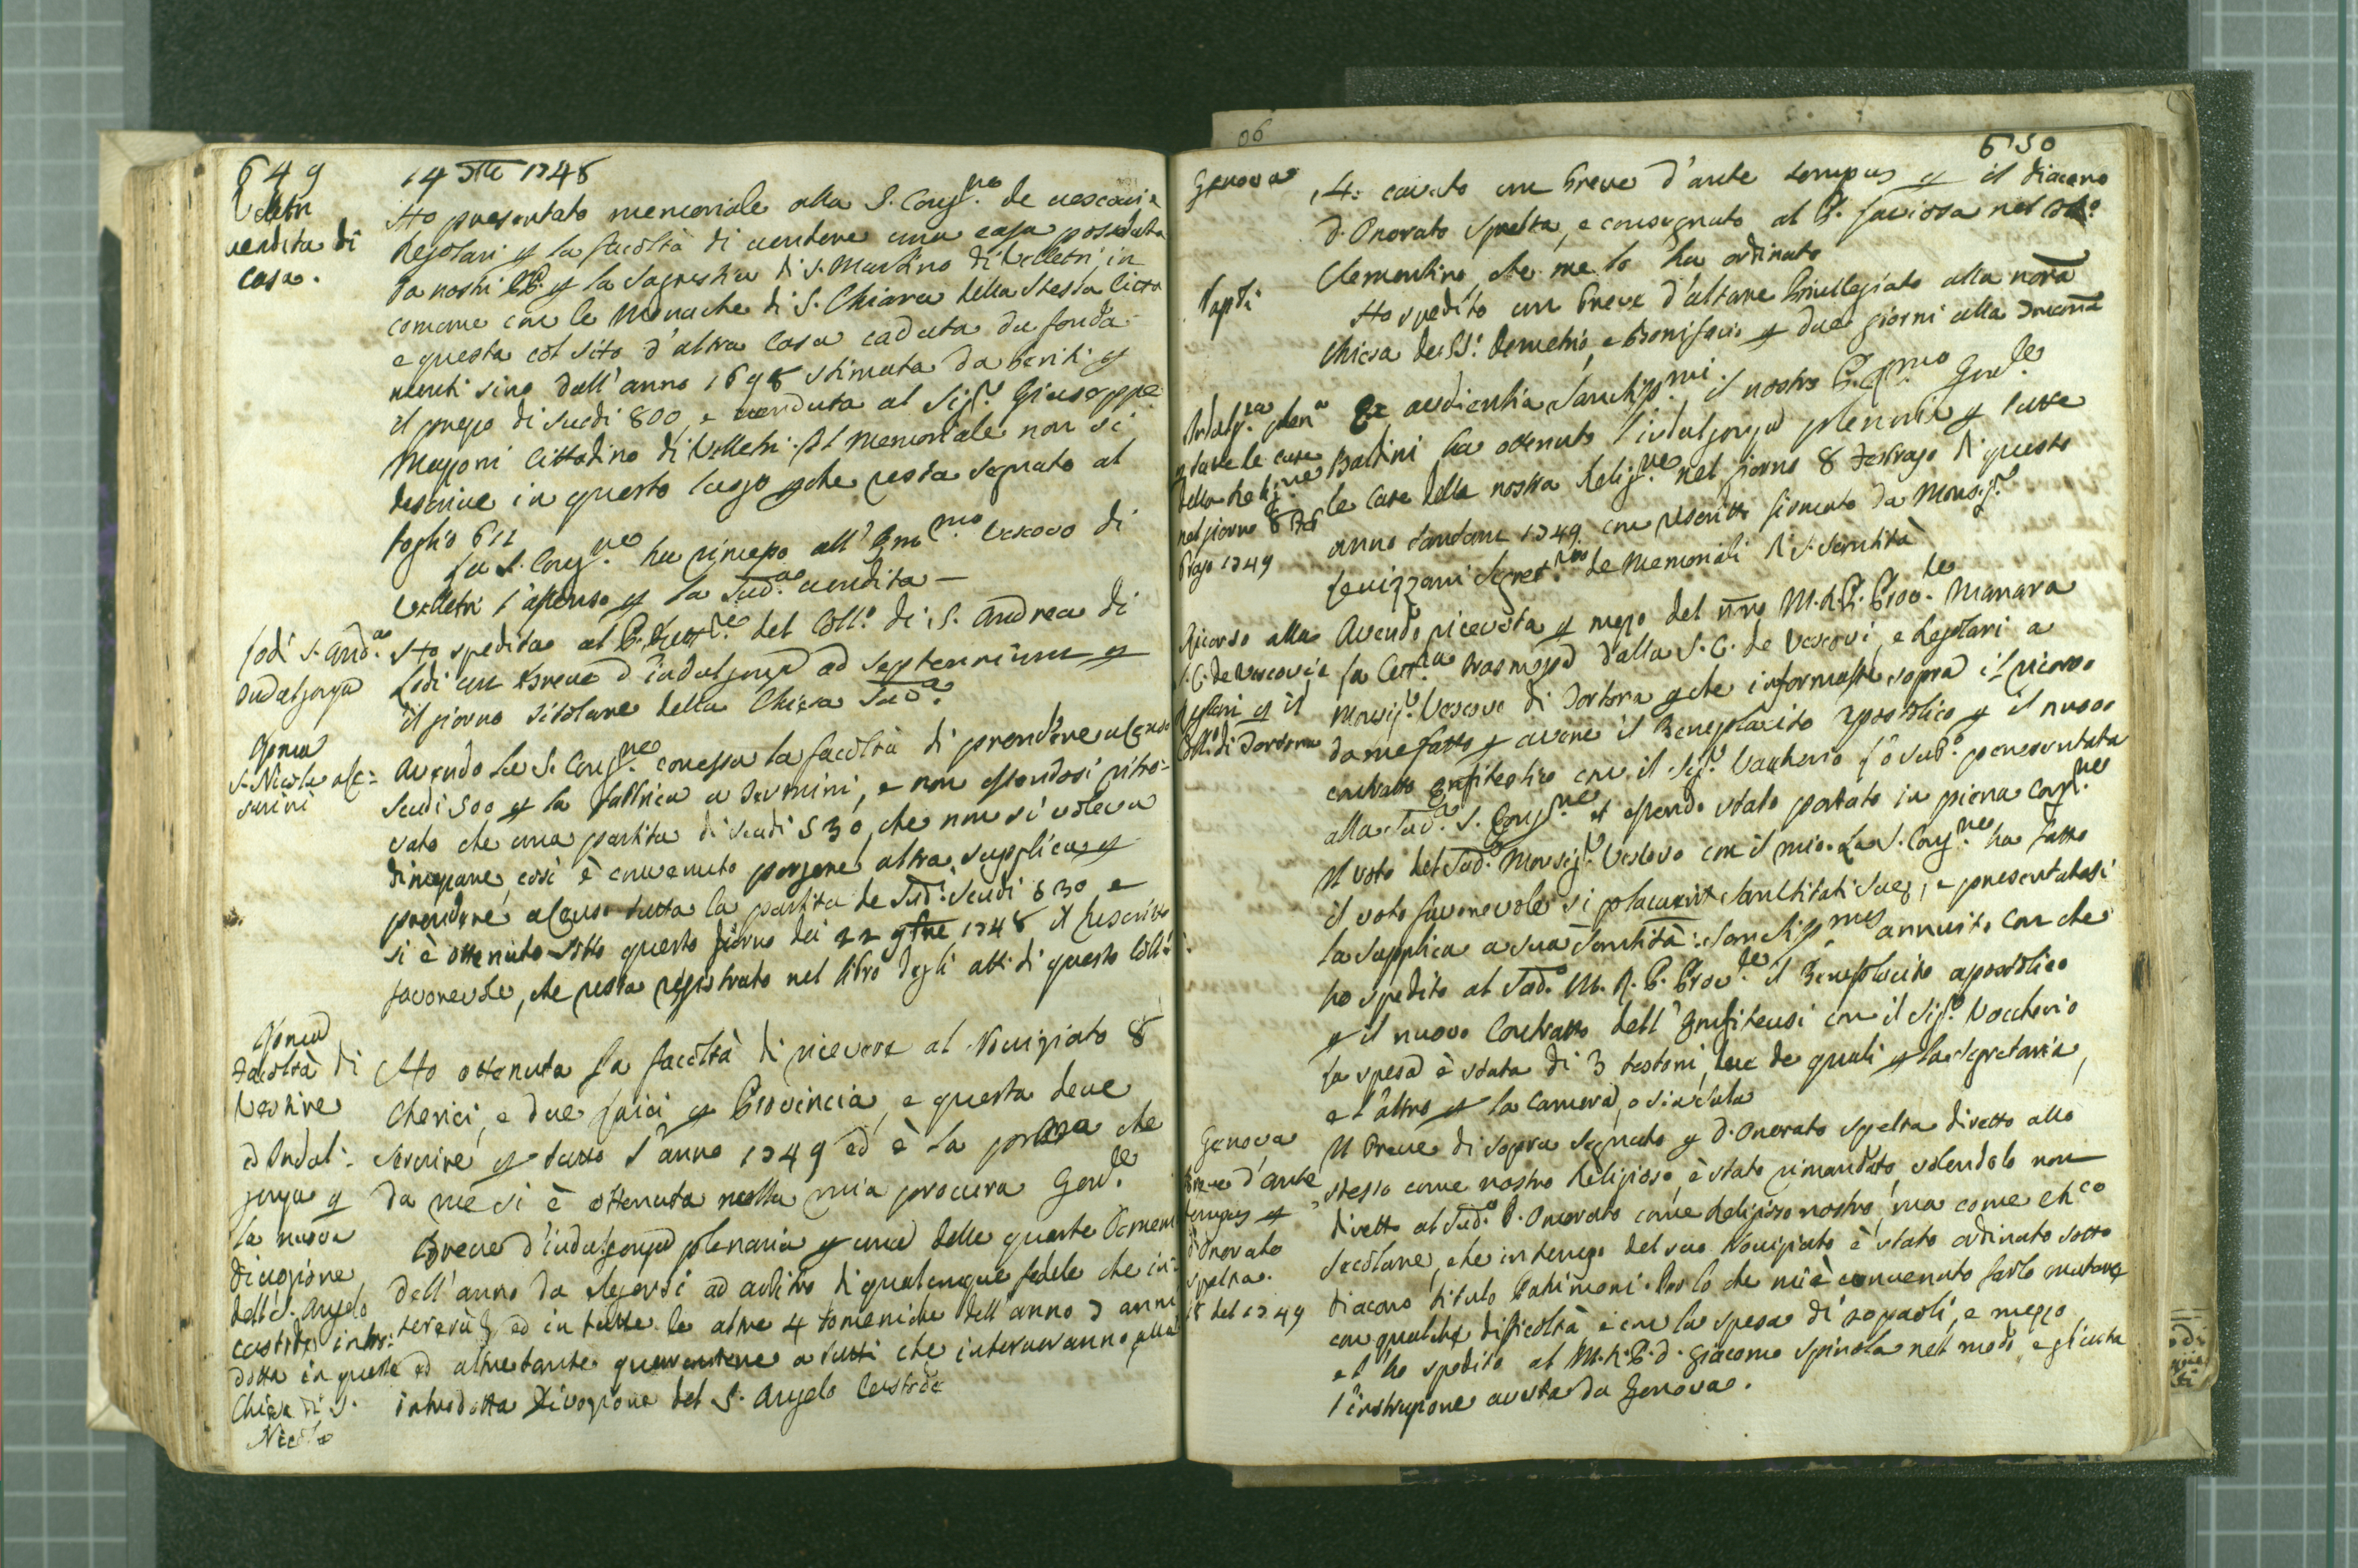 649
14 1748
Velletri
vendita di
casa.
Ho presentato memoriale alla S. Congne. de vescovi e
Regolari la facoltà di vendere una casa posseduta
da nostri PP. la Sagrestia di S. Martino di Velletri, in
comune con le Monache di S. Chiara della stessa Città
e questa col sito d'altra casa caduta da fonda
menti sino dall'anno 1698 stimata da periti
il prezzo di scudi 800, e venduta al Sigr. Giuseppe
Mazzoni Cittadino di Velletri. Il Memoriale non si
descrive in questo luogo che resta segnato al
foglio 612
La S. Congne. ha rimesso all' Emmo Vescovo di
Velletri l'assenso la sudda. vendita —
Lodi S. Anda.
Indulgenza
Ho spedita al P. del Collo. di S. Andrea di
Lodi un Breve d'indulgenza ad septennium
il giorno titolare della Chiesa Suda.
Roma
S. Nicola a Ce=
sarini
Avendo la S. Congne. concessa la facoltà di prendere a Censo
scudi 500 la fabbrica a, e non essendosi ritro=
vato che una partita di scudi 530, che non si voleva
dimezzare, così è convenuto porgere altra supplica
prendere a Censo tutta la partita de Sudi. Scudi 530, e
si è ottenuto sotto questo giorno dei 22 9bre 1748 il Rescritto
favorevole, che resta registrato nel libro degli atti di questo Collo.
Roma
Facoltà di
Vestire
ed Indul=
genza
la nuova
divozione
dell'S. Angelo
custode intro=
dotta in questa
Chiesa di S.
Nicola
Ho ottenuta la facoltà di ricevere al Noviziato 8
Cherici, e due laici Provincia, e questa deve
servire tutto l'anno 1749 ed è la prima che
da me si è ottenuta nella mia procura Genle.
Breve d'indulgenza plenaria una delle quarte Domeni
dell'anno da elegersi ad arbitrio di qualunque fedele che in=
terverrà, ed in tutte le altre 4 domeniche dell'anno 7 anni
ed altretante quarantene a tutti che interveranno alla
introdotta Divozione del S. Angelo Custode
06
650
Genova
14: cavato un breve d'ante tempus il diacono
D. Onorato Spelta, e consegnato al P. nel Collo.
Clementino, che me lo ha ordinato
Napoli
Ho spedito un breve d'altare Privilegiato alla nostra
Chiesa de SS. Demetrio, e Bonifacio due giorni alla
Indulgza. plena.
tutte le case
della Religne.
nel giorno 8
1749
Ex audientia Sanctissmi. il nostro P. Prmo Genle.
Baldini ha ottenuto l'indulgenza plenaria tutte
le Case della nostra Religne. nel giorno 8 di questo
anno 1749 con rescritto firmato da Monsigr.
Levizzani Segretrio de Memoriali di S. Santità
Ricorso alla
S. C. de Vescovi, e
Regolari il
Collo. di Tortona
Avendo ricevuta mezzo del nro M. R. P. Prove. Manara
la trasmessa dalla S. C. de Vescovi, e Regolari a
Monsigr. Vescovo di Tortona che informasse sopra il ricorso
da me fatto avere il Beneplacito Apostolico il nuovo
contratto enfiteotico con il Sigr. Vaccherio l'ò subo. presentata
alla Suda. S. Congne. et essendo stato portato in piena Congne.
Il voto del Sudo. Monsigr. Vescovo con il mio. La S. Congne. ha fatto
il voto favorevole si placuerit Sanctitati Suae, e presentatasi
la supplica a sua Santità: Sanctissmus annuit. con che
ho spedito al Sudo. M. R. P. Prove. il Beneplacito apostolico
il nuovo Contratto dell'Enfiteusi con il Sigr. Vaccherio
la spesa è stata di 3 testoni, due de quali la Segretaria,
e l'altro la camera, o sia sala
Genova
Breve d'ante
tempus
D. Onorato
Spelta.
18 del 1749
Il Breve di sopra segnato D. Onorato Spelta diretto allo
stesso come nostro Religioso, è stato rimandato, volendolo non
diretto al Sudo. D. Onorato come Religioso nostro, ma come chco
secolare, che in tempo del suo Noviziato è stato ordinato sotto
diacono titulo Patrimoni. Per lo che mi è convenuto farlo mutare
con qualche dificoltà, e con la spesa di paoli, e mezzo
e l'ho spedito al M. R. P. D. Giacomo Spinola nel modo, e giusta
l'instruzione avuta da Genova.